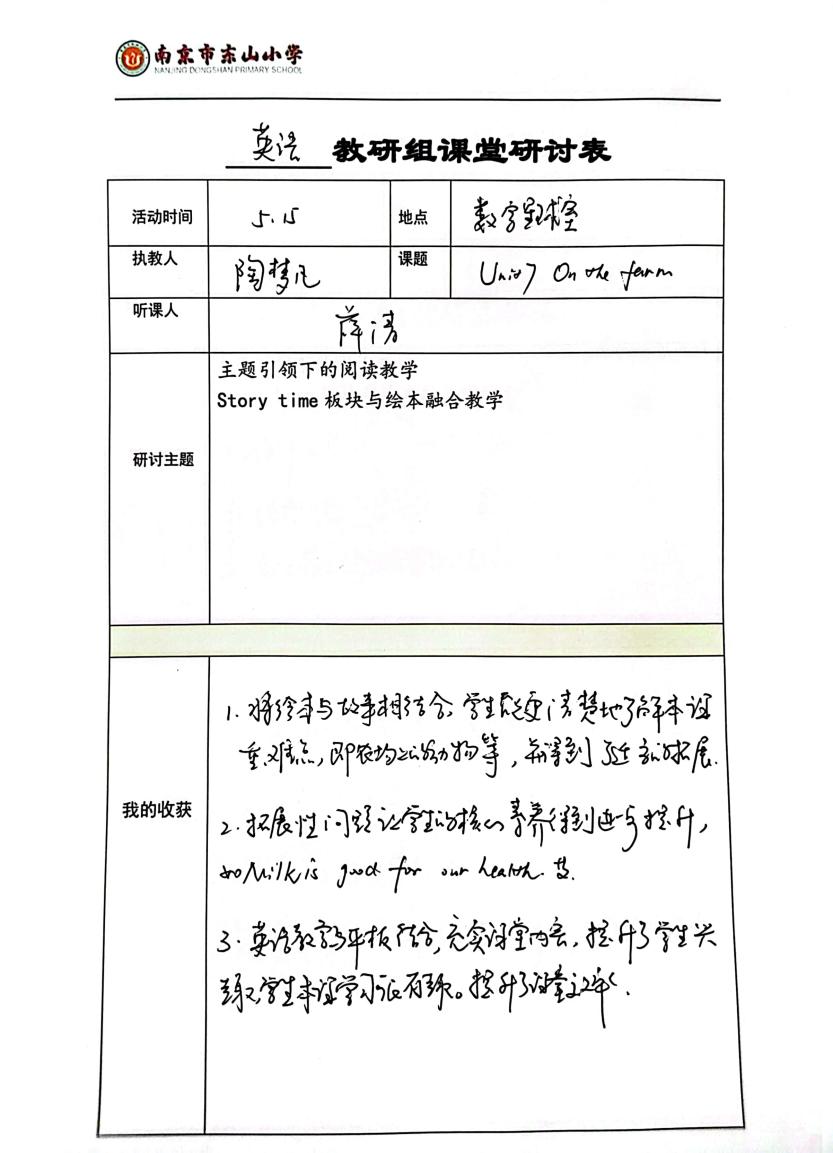 南京市东山小学
NANJING DONGSHAN PRIMARY SCHOOL
英语 教研组课堂研讨表
活动时间 5.15 地点 数字星球室
执教人 陶梦凡 课题 Unit7 On the farm
听课人 薛清
主题引领下的阅读教学
Story time 板块与绘本融合教学
研讨主题
1. 将绘本与故事相结合, 学生能更清楚地了解本课
重难点, 即农场上的动物等, 并得到适当的拓展.
我的收获
2. 拓展性问题让学生的核心素养得到进步提升,
如 Milk is good for our health. 等.
3. 英语教学与平板结合, 充实课堂内容, 提升了学生兴
趣, 学生本课学习。提升了课堂效率.